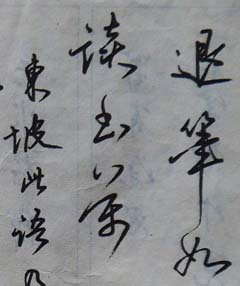 退筆如
讀書萬
東坡此語乃